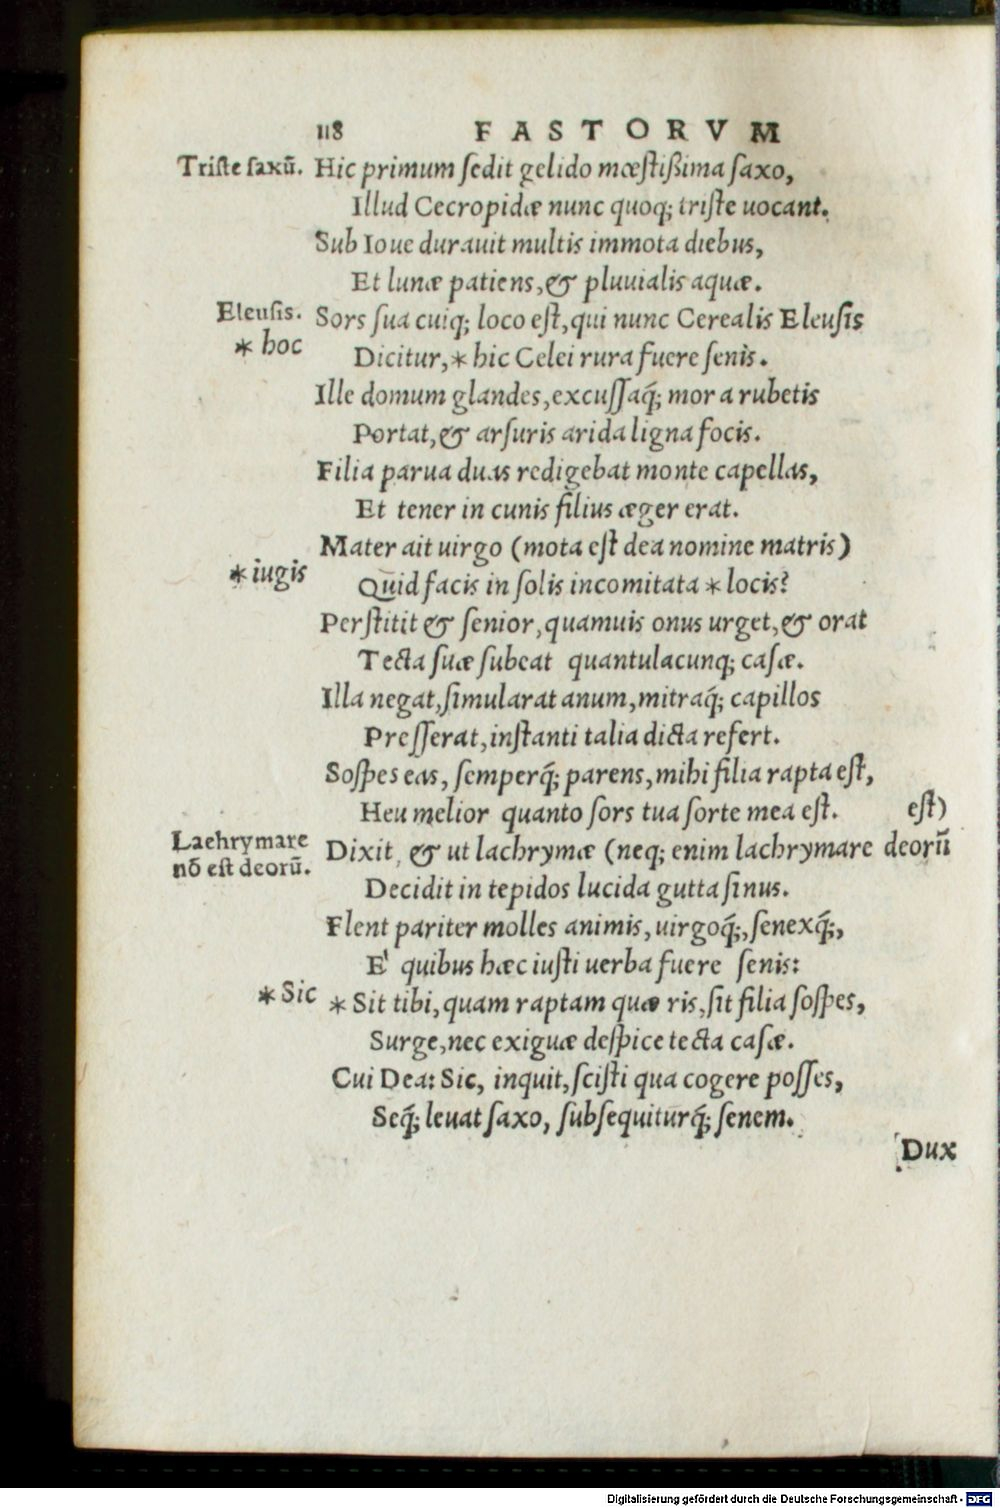 118 FASTORVM
Triste saxū. Hic primum sedit gelido mœstißima saxo,
Illud Cecropidæ nunc quoq; triste uocant.
Sub Ioue durauit multis immota diebus,
Et lunæ patiens, & pluuialis aquæ.
Eleusis. Sors sua cuiq; loco est, qui nunc Cerealis Eleusis
* hoc Dicitur, * hic Celei rura fuere senis.
Ille domum glandes, excussaq́; mora rubetis
Portat, & arsuris arida ligna focis.
Filia parua duas redigebat monte capellas,
Et tener in cunis filius æger erat.
Mater ait uirgo (mota est dea nomine matris)
* iugis Quid facis in solis incomitata * locis?
Perstitit & senior, quamuis onus urget, & orat
Tecta suæ subeat quantulacunq; casæ.
Illa negat, simularat anum, mitraq́; capillos
Presserat, instanti talia dicta refert.
Sospes eas, semperq́; parens, mihi filia rapta est,
Heu melior quanto sors tua sorte mea est. est)
Lachrymare nō est deorū. Dixit, & ut lachrymæ (neq; enim lachrymare deorū
Decidit in tepidos lucida gutta sinus.
Flent pariter molles animis, uirgoq́;, senexq́;,
E' quibus hæc iusti uerba fuere senis:
* Sic * Sit tibi, quam raptam quæris, sit filia sospes,
Surge, nec exiguæ despice tecta casæ.
Cui Dea: Sic, inquit, scisti qua cogere posses,
Seq́; leuat saxo, subsequiturq́; senem.
Dux
Digitalisierung gefördert durch die Deutsche Forschungsgemeinschaft - DFG